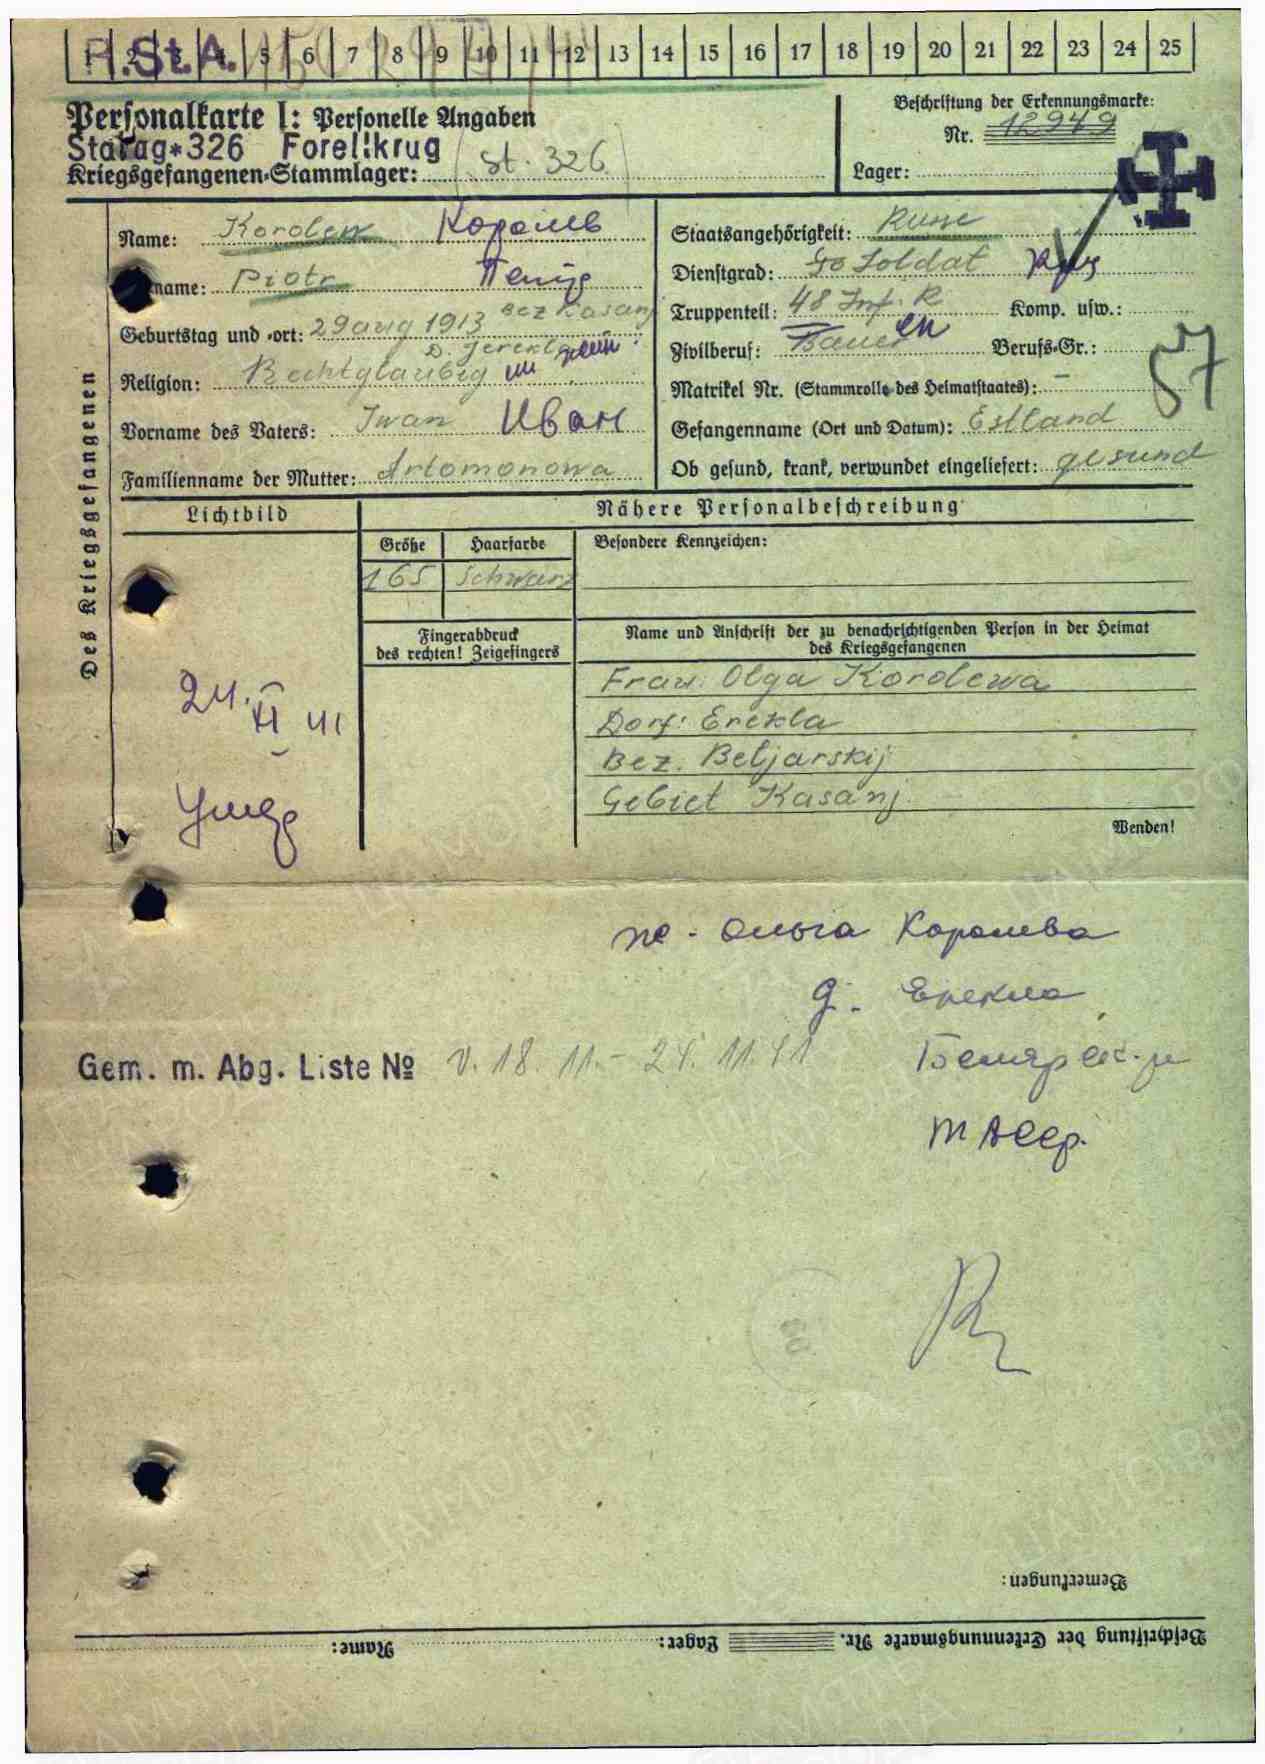 R.St.A.
1 2 3 4 5 6 7 8 9 10 11 12 13 14 15 16 17 18 19 20 21 22 23 24 25
Personalkarte I: Personelle Angaben
Stalag*326 Forellkrug
Kriegsgefangenen-Stammlager: St. 326
Beschriftung der Erkennungsmarke:
Nr. 12949
Lager:
Des Kriegsgefangenen
Name: Korolew Король
name: Piotr
Geburtstag und -ort: 29 aug 1913 Bez Kasanj
D. Jerekla
Religion: Rechtglaubig
Vorname des Vaters: Iwan Иван
Familienname der Mutter: Artomonowa
Staatsangehörigkeit: Russe
Dienstgrad: Soldat
Truppenteil: 48 Inf. R Komp. usw.:
Zivilberuf: Bauer Berufs-Gr.:
Matrikel Nr. (Stammrolle des Heimatstaates): -
57
Gefangennahme (Ort und Datum): Estland
Ob gesund, krank, verwundet eingeliefert: gesund
Lichtbild
Nähere Personalbeschreibung
Größe Haarfarbe Besondere Kennzeichen:
165 Schwarz
Fingerabdruck
des rechten! Zeigefingers
Name und Anschrift der zu benachrichtigenden Person in der Heimat
des Kriegsgefangenen
Frau: Olga Korolewa
Dorf: Erekla
Bez. Beljarskij
Gebiet Kasanj
Wenden!
24. XI 41
Умер
Ольга Королева
д. Ерекла
Белярск.
ТАССР.
Gem. m. Abg. Liste № v. 18. 11. - 24. 11. 41
Bemerkungen:
Beschriftung der Erkennungsmarke Nr. Lager: Name: